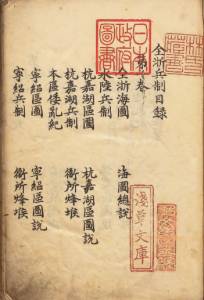 全浙兵制目錄
第一卷
全浙海圖
海圖總說
水陸兵制
杭嘉湖區圖
杭嘉湖區圖說
杭嘉湖兵制
衞所烽堠
本區倭亂紀
寧紹區圖
寧紹區圖說
寧紹兵制
衞所烽堠
日本
政府
圖書
淺草文庫